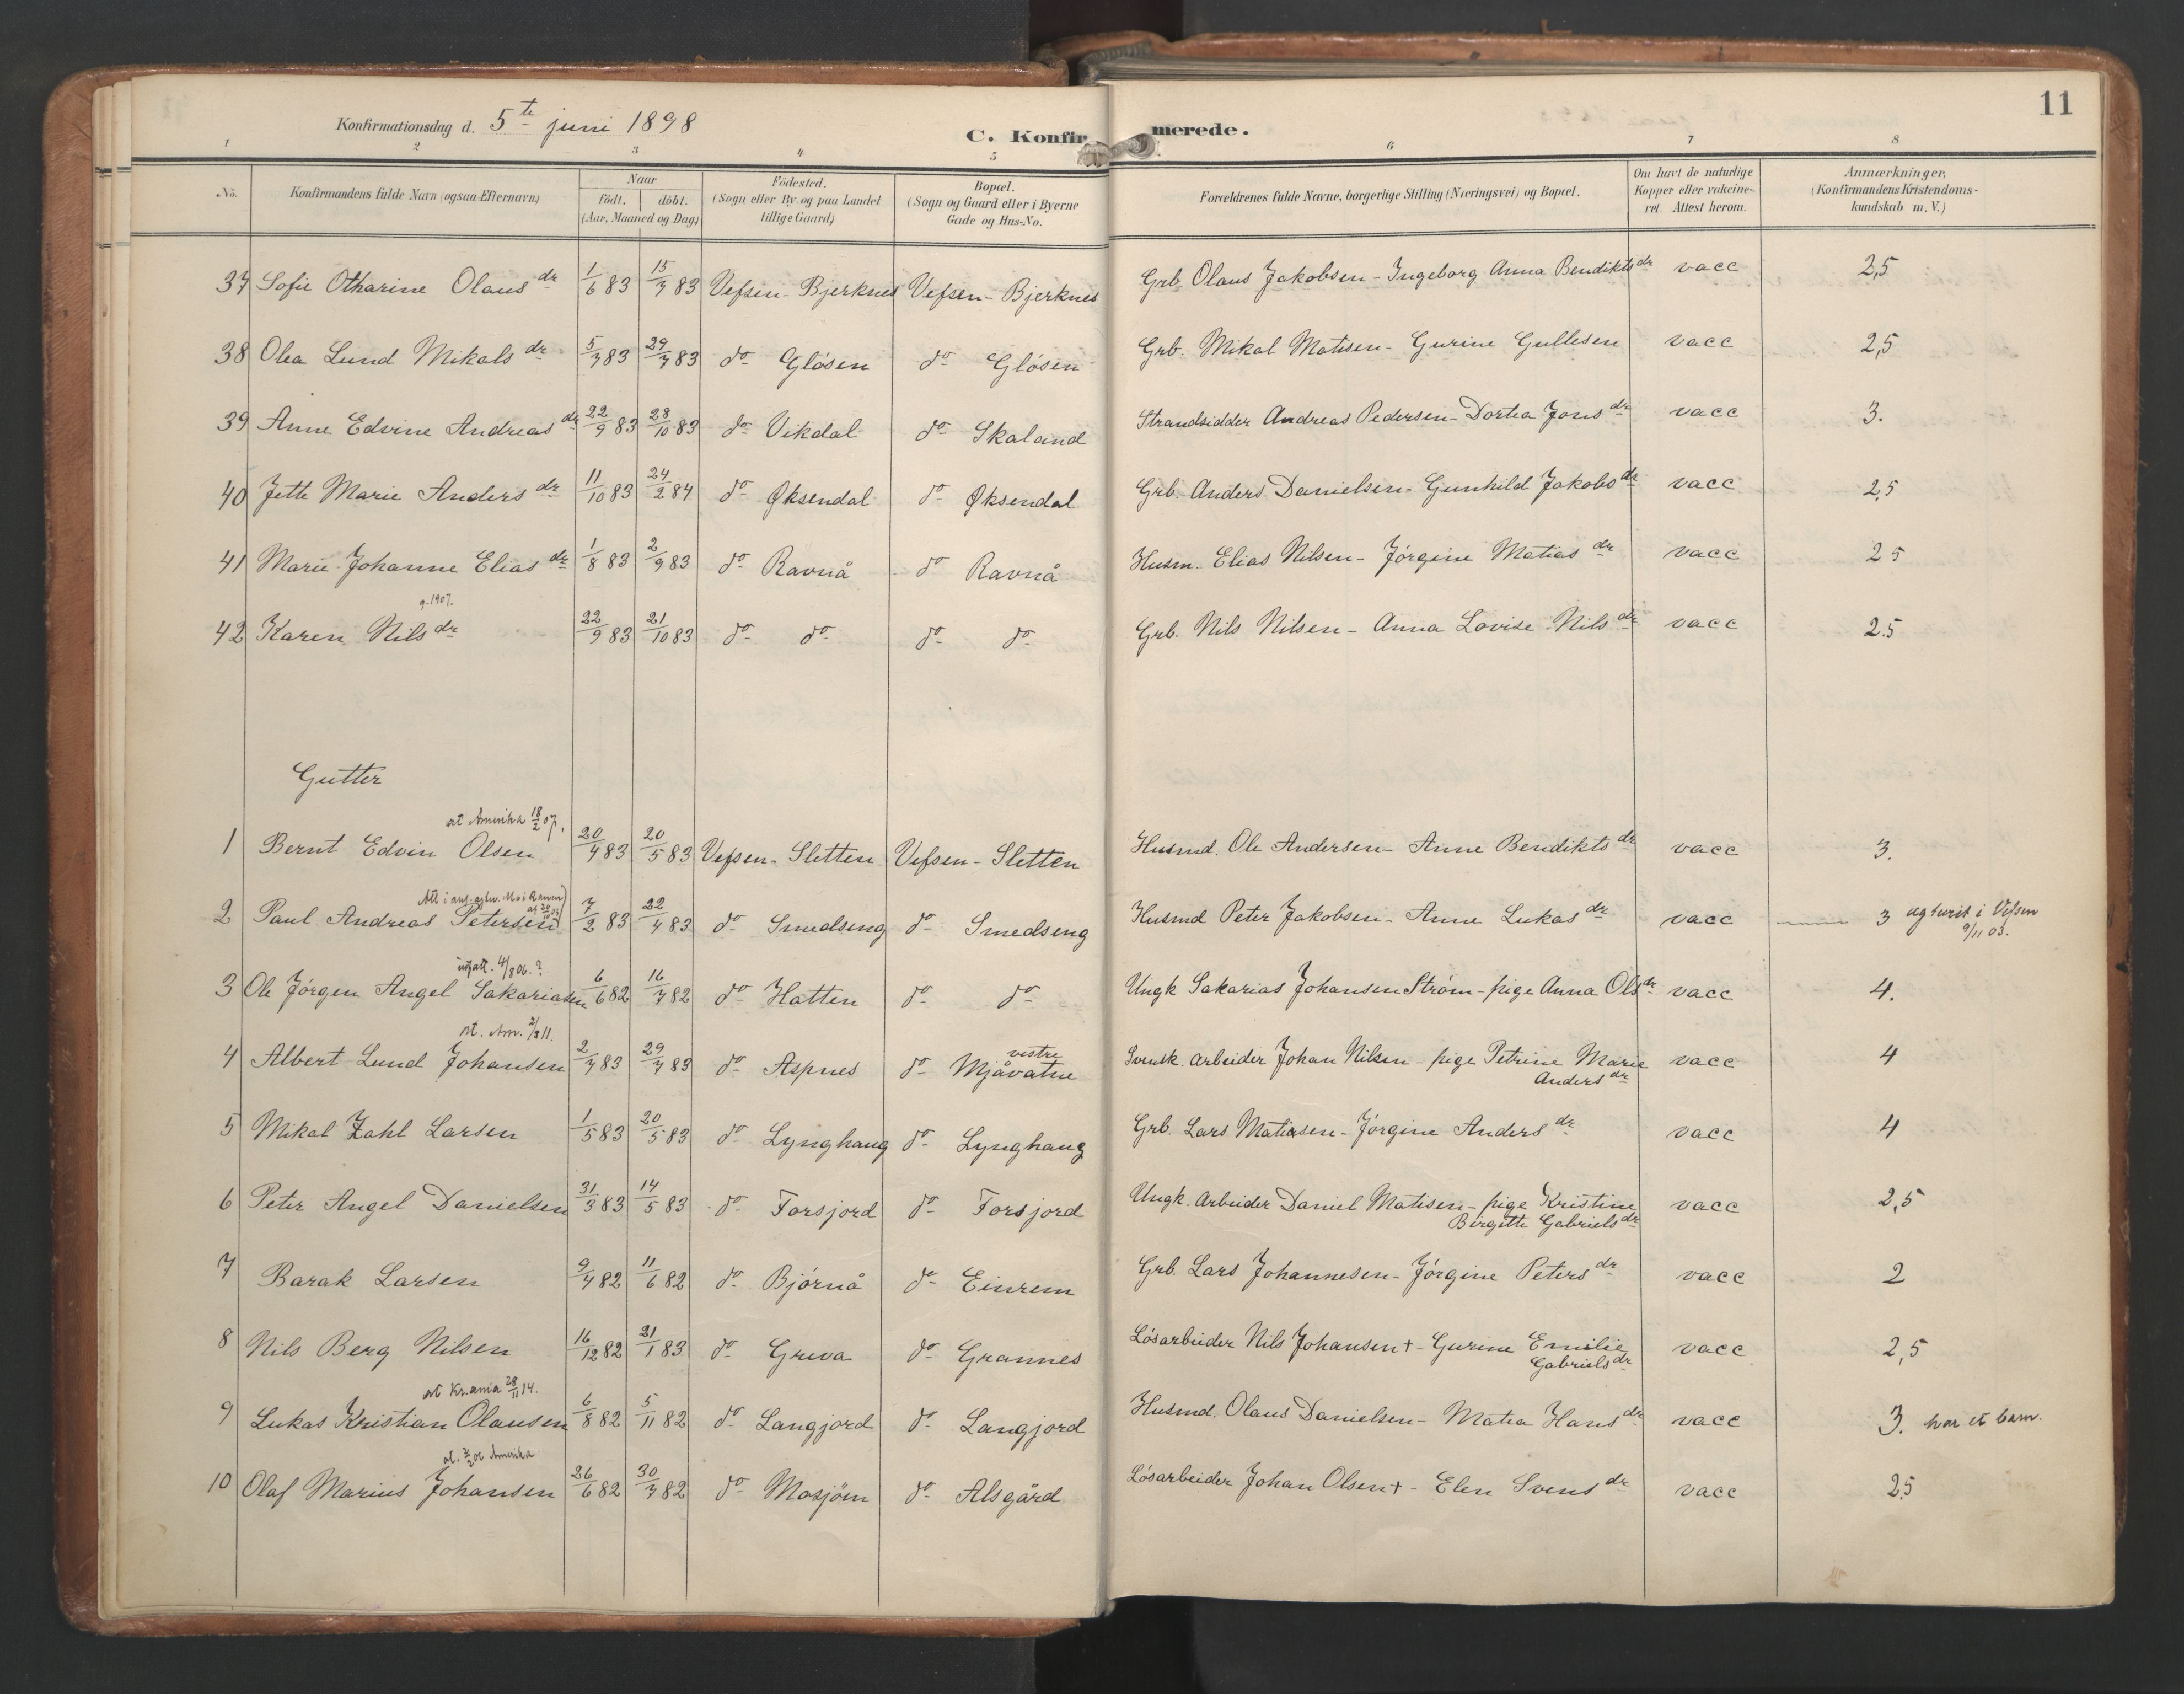 11
Konfirmationsdag d. 5te juni 1898
C. Konfirmerede.
1 2 3 4 5 6 7 8
No. Konfirmandens fulde Navn (ogsaa Efternavn) Naar født. døbt. (Aar, Maaned og Dag) Födested. (Sogn eller By og paa Landet tillige Gaard) Bopæl. (Sogn og Gaard eller i Byerne Gade og Hus-No. Forældrenes fulde Navne, borgerlige Stilling (Næringsvei) og Bopæl. Om havt de naturlige Kopper eller vakcineret. Attest herom. Anmærkninger. (Konfirmandens Kristendomskundskab m. V.)
37 Sofie Otharine Olausdr 1/6 83 15/7 83 Vefsen - Bjerknes Vefsen - Bjerknes Grb. Olaus Jakobsen - Ingeborg Anna Bendiktsdr vacc 2,5
38 Olea Lund Mikalsdr 5/7 83 29/7 83 do Gløsen do Gløsen Grb. Mikal Matisen - Gurine Gullesen vacc 2,5
39 Anne Edvine Andreasdr 22/9 83 28/10 83 do Vikdal do Skaland Strandsidder Andreas Pedersen - Dortea Jonsdr vacc 3.
40 Jette Marie Andersdr 11/10 83 24/2 84 do Øksendal do Øksendal Grb. Anders Danielsen - Gunhild Jakobsdr vacc 2,5
41 Marie Johanne Eliasdr 1/8 83 2/9 83 do Ravnå do Ravnå Husm. Elias Nilsen - Jørgine Matiasdr vacc 2 5
g. 1907.
42 Karen Nilsdr 22/9 83 21/10 83 do do do do Grb. Nils Nilsen - Anna Lovise Nilsdr vacc 2.5
Gutter
at Amerika 18/2 07.
1 Bernt Edvin Olsen 20/4 83 20/5 83 Vefsen - Sletten Vefsen - Sletten Husmd. Ole Andersen - Anne Bendiktsdr vacc 3.
2 Paul Andreas Petersen 7/2 83 22/4 83 do Smedseng do Smedseng Husmd Peter Jakobsen - Anne Lukasdr vacc 3 i Vefsen 9/11 03.
4/8 06. ?
3 Ole Jørgen Angel Sakariasen 6/6 82 16/7 82 do Hatten do do Ungk Sakarias Johansen Strøm - pige Anna Olsdr vacc 4.
at. Am. 2/3 11.
4 Albert Lund Johansen 2/7 83 29/7 83 do Aspnes do vestre Mjåvatne Svensk. Arbeider Johan Nilsen - pige Petrine Marie Andersdr vacc 4
5 Mikal Zahl Larsen 1/5 83 20/5 83 do Lynghaug do Lynghaug Grb. Lars Matiasen - Jørgine Andersdr vacc 4
6 Peter Angel Danielsen 31/3 83 14/5 83 do Forsjord do Forsjord Ungk. Arbeider Daniel Matisen - pige Kristine Birgitte Gabrielsdr vacc 2,5
7 Barak Larsen 9/4 82 11/6 82 do Bjørnå do Einrem Grb. Lars Johannesen - Jørgine Petersdr vacc 2
8 Nils Berg Nilsen 16/12 82 21/1 83 do Greva do Grannes Løsarbeider Nils Johansen + - Gurine Emilie Gabrielsdr vacc 2,5
at Kr.ania 28/11 14.
9 Lukas Kristian Olausen 6/8 82 5/11 82 do Langjord do Langjord Husmd. Olaus Danielsen - Matea Hansdr vacc 3. har et barn.
Amerika
10 Olaf Marius Johansen 26/6 82 30/7 82 do Mosjøen do Alsgård Løsarbeider Johan Olsen + - Elen Svensdr vacc 2,5